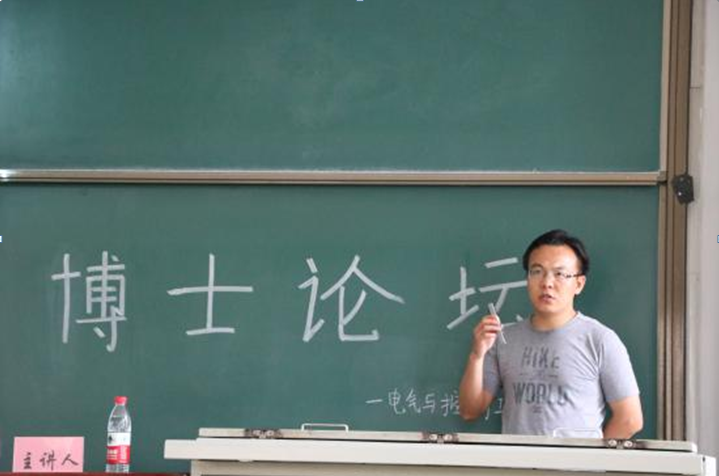 博士论坛
一电气与控
HIKE
WORLD
主讲人